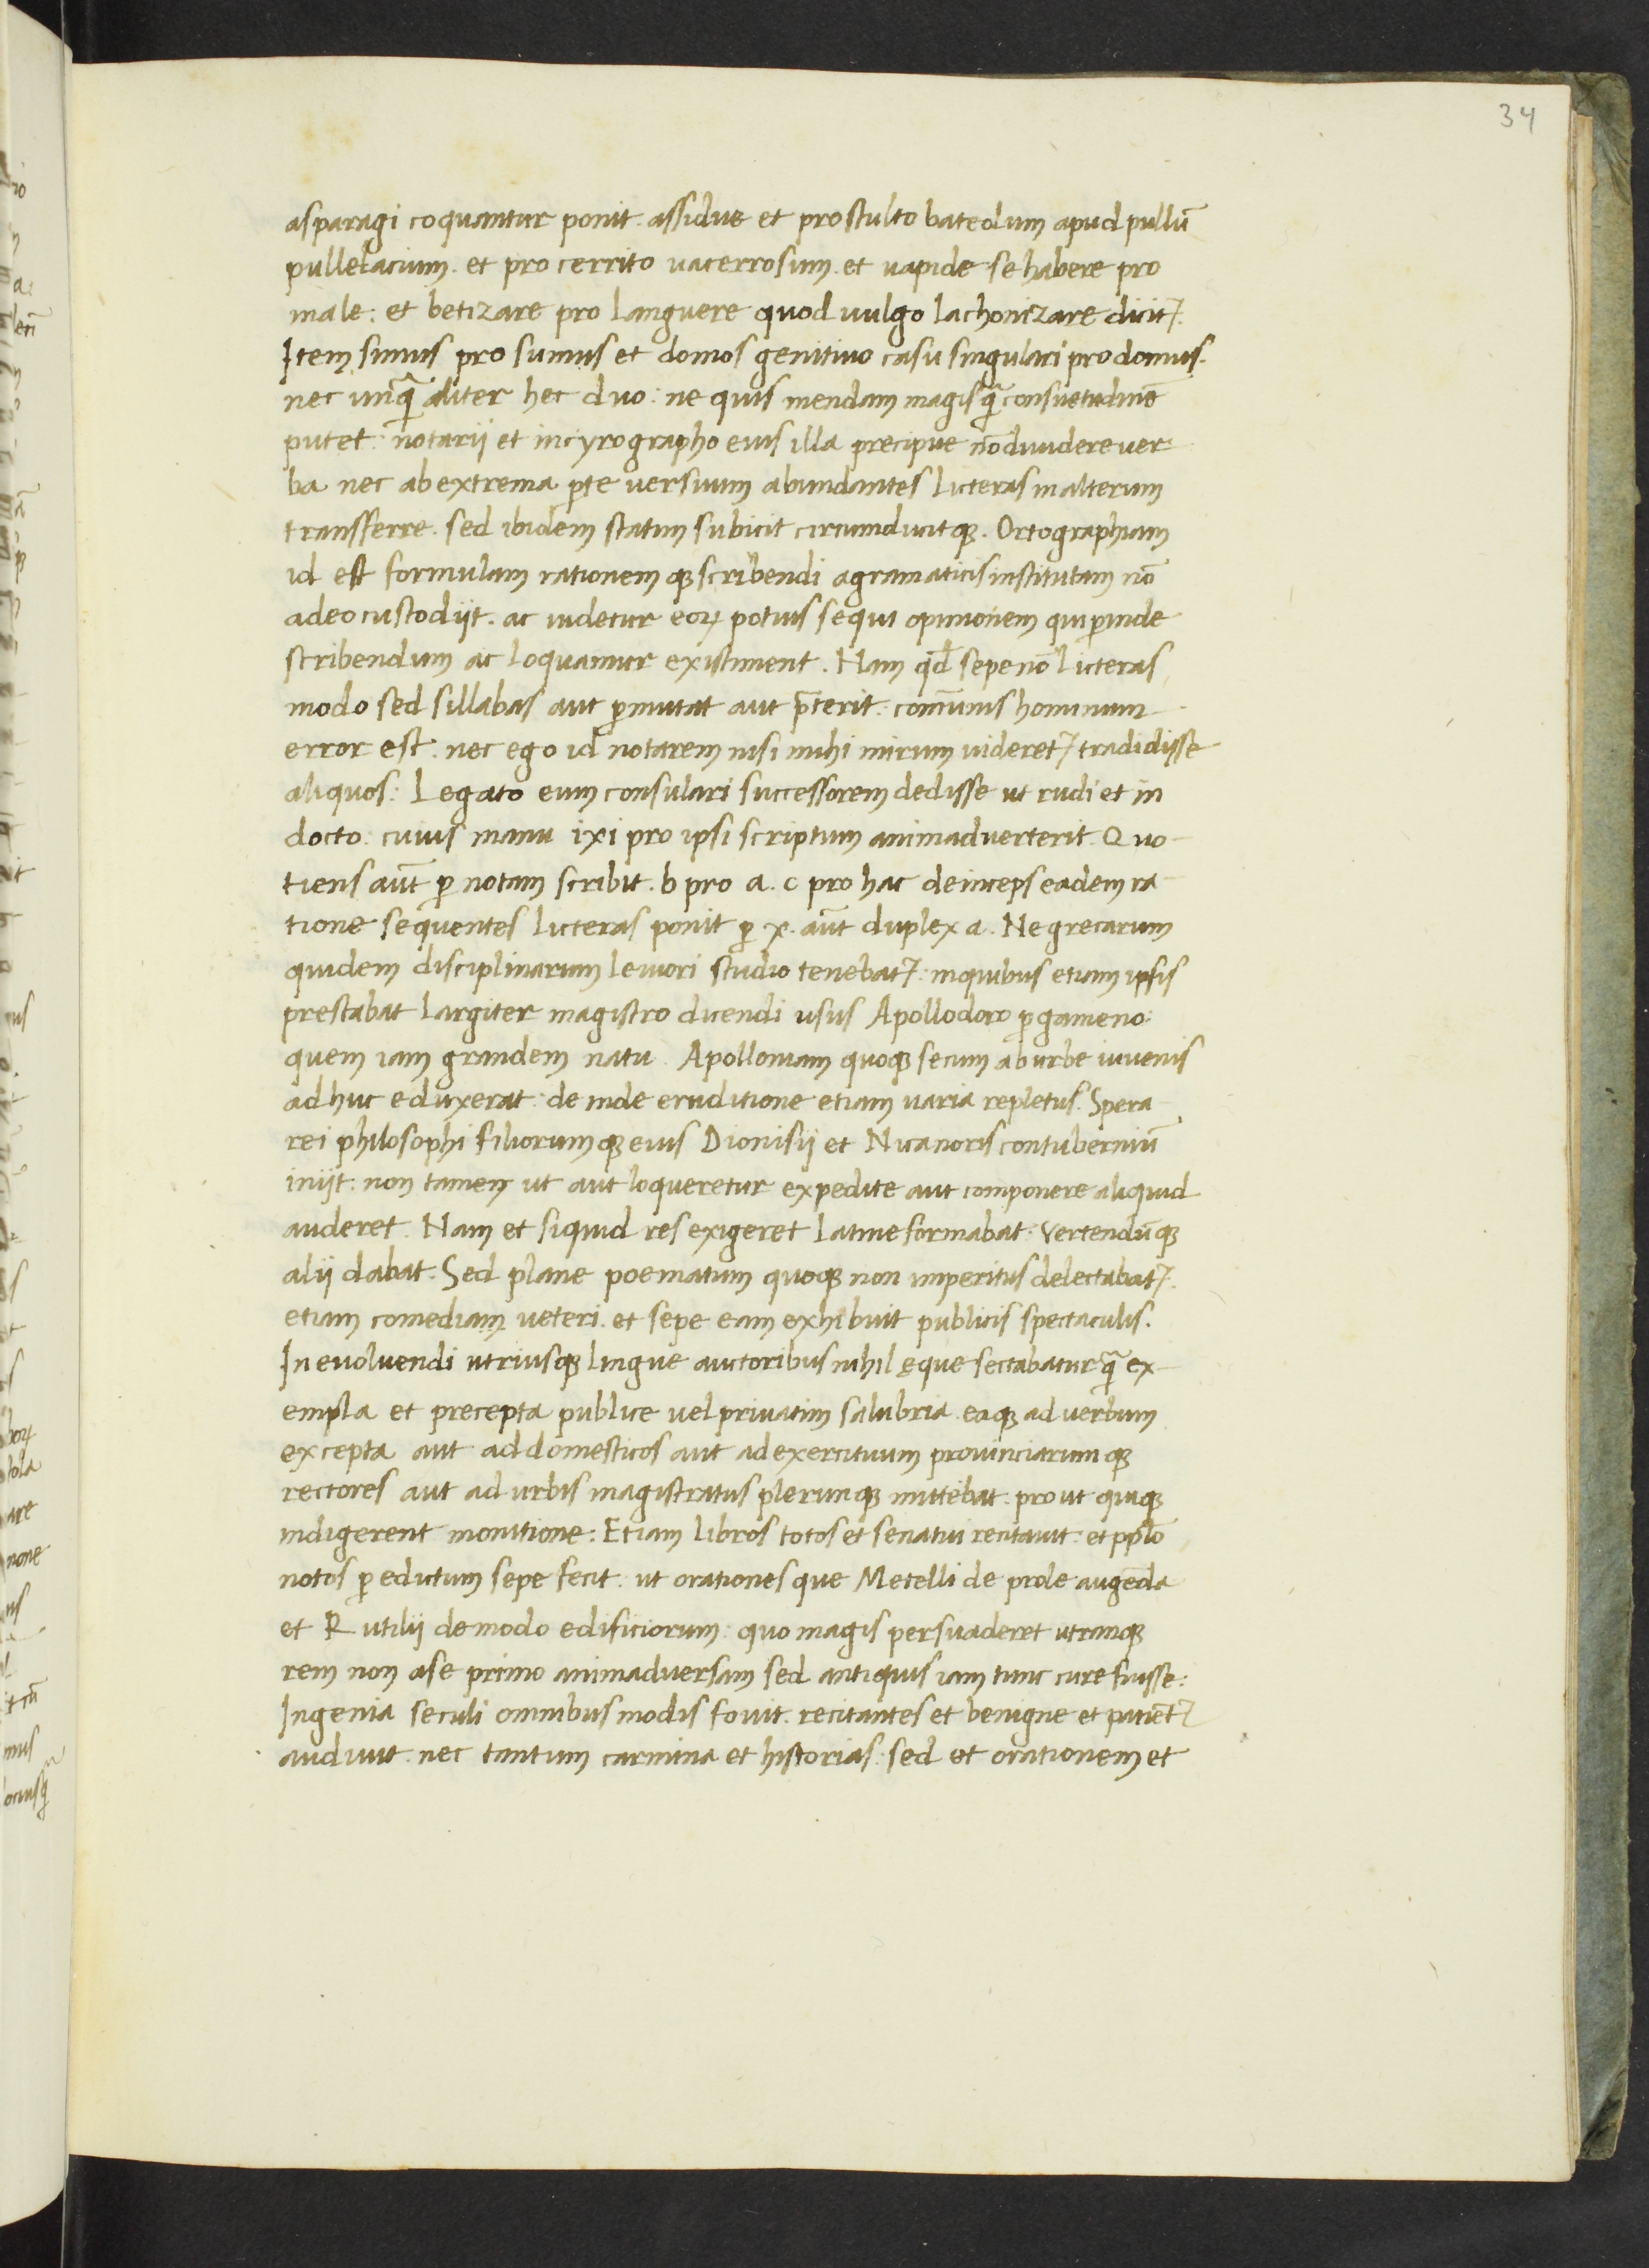 34
asparagi coquantur ponit. assidue et pro stulto bateolum apud pullū
pulletacium. et pro cerrito vacerrosum. et vapide se habere pro
male: et betizare pro languere quod vulgo lachonizare dicitꝛ.
Item simus pro sumus et domos genitivo casu singulari pro domus.
nec unq̄ aliter hec duo: ne quis mendam magis q̄ consuetudinē
putet: notarii et in cyrographo eius illa precipue nō dividere ver
ba nec ab extrema ꝑte versuum abundantes licteras in alterum
transferre. sed ibidem statim subicit circumducitqꝫ. Ortographiam
id est formulam rationem qꝫ scribendi a gramaticis institutam nō
adeo custodiit. ac videtur eoꝝ potius sequi opinionem qui ꝑinde
scribendum ac loquamur existiment. Nam qd̄ sepe nō licteras
modo sed sillabas aut ꝑmutat aut p̄terit: comunis hominum
error est: nec ego id notarem nisi mihi mirum videretꝛ tradidisse
aliquos: Legato eum consulari successorem dedisse ut rudi et in
docto: cuius manu ixi pro ipsi scriptum animadverterit. Quo
tiens aūt ꝑ notam scribit. b pro a. c pro hac deinceps eadem ra
tione sequentes licteras ponit ꝑ x. aūt duplex a. Ne grecarum
quidem disciplinarum leviori studio tenebatꝛ: in quibus etiam ipsis
prestabat largiter magistro dicendi usus Apollodoro ꝑgameno:
quem iam grandem natu. Apolloniam quoqꝫ secum ab urbe iuvenis
adhuc eduxerat: deinde eruditione etiam varia repletus. Spera
rei philosophi filiorumqꝫ eius Dionisii et Nicanoris contuberniū
iniit: non tamen ut aut loqueretur expedite aut componere aliquid
auderet. Nam et siquid res exigeret latine formabat: vertendūqꝫ
alii dabat. Sed plane poematum quoqꝫ non imperitus delectabatꝛ.
etiam comediam veteri. et sepe eam exhibuit publicis spectaculis.
In evolvendi utriusqꝫ lingue auctoribus nihil ęque sectabatur q̄ ex
empla et precepta publice vel privatim salubria. eaqꝫ ad verbum
excepta aut ad domesticos aut ad exercituum provinciarumqꝫ
rectores aut ad urbis magistratus plerunqꝫ mittebat: prout quiqꝫ
indigerent monitione: Etiam libros totos et senatui recitavit: et pplō
notos ꝑ edictum sepe fecit: ut orationes que Metelli de prole augēda
et Rutilii de modo edificiorum: quo magis persuaderet utranqꝫ
rem non a se primo animadversam sed antiquis iam tunc cure fuisse:
Ingenia seculi omnibus modis fovit. recitantes et benigne et patiētꝛ
audivit: nec tantum carmina et historias: sed et orationem et